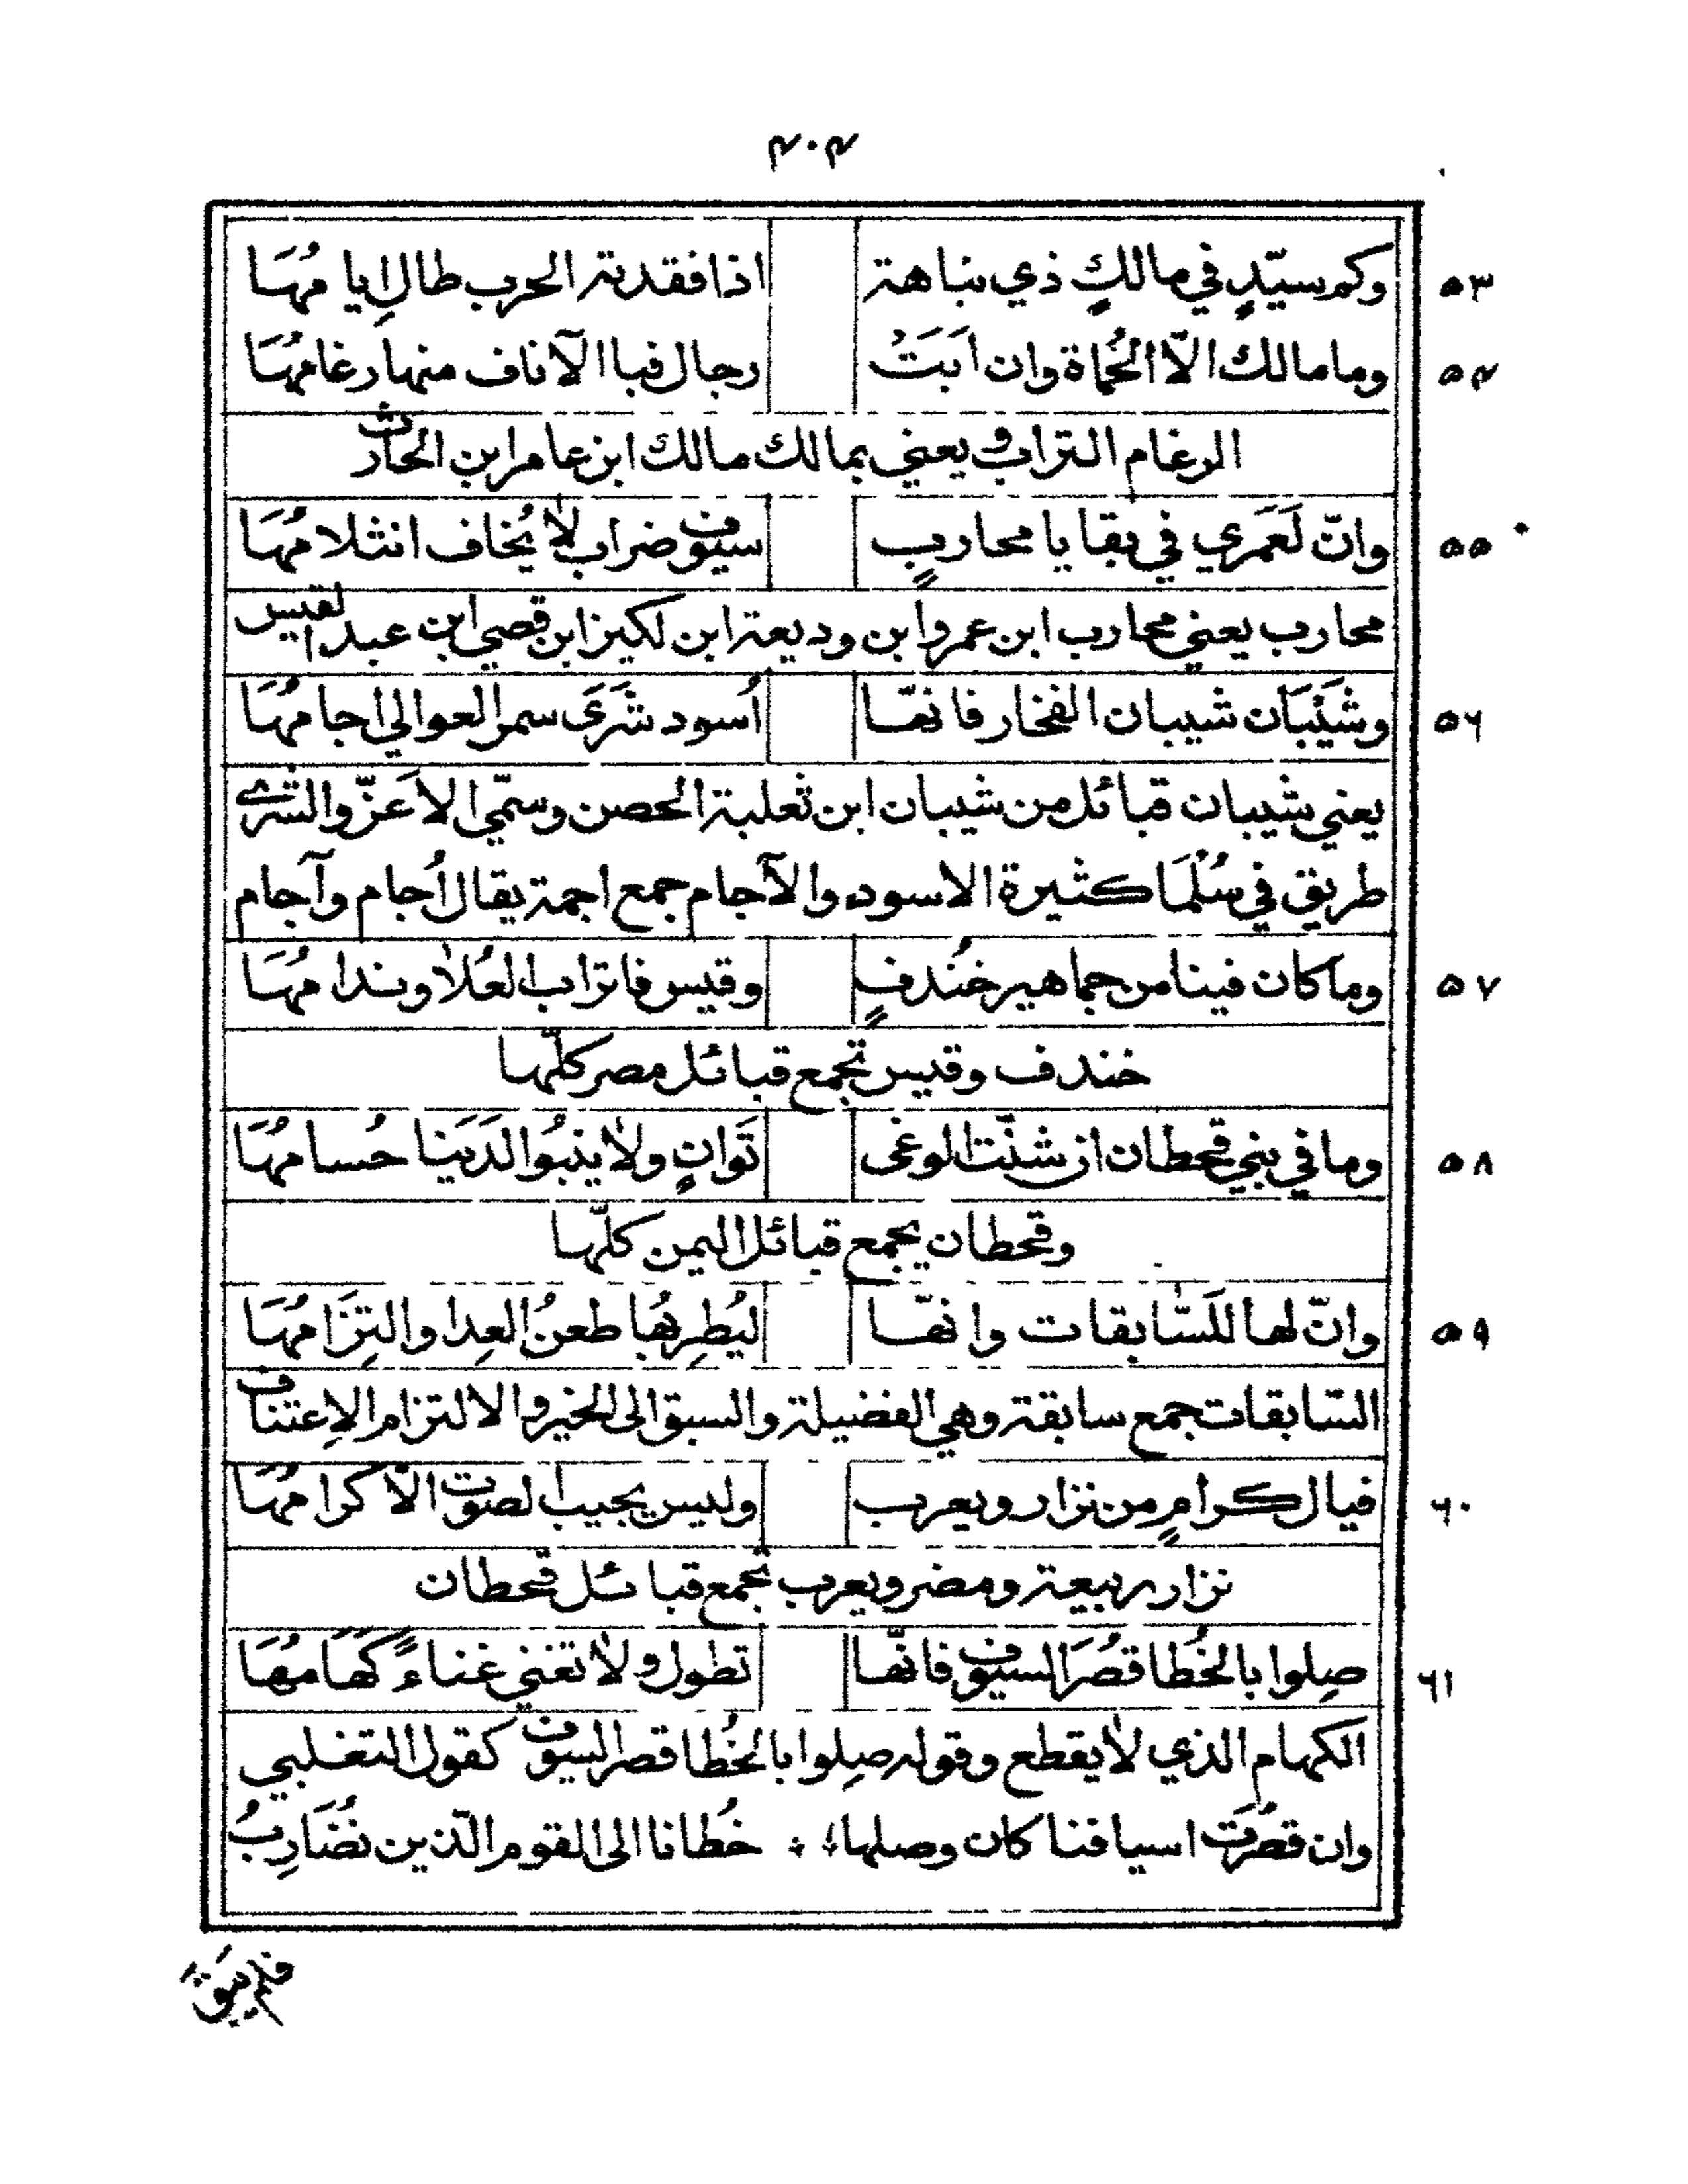 ٤٠٤
٥٣ وكم سيّدٍ في مالكٍ ذي نباهة اذا فقدته الحرب طال اِيا مُهَا
٥٤ وما مالك الاّ الحُماة وان اَبَتَ رجال فبا الآناف منها رغامُهَا
الرغام التراب ويعني بمالك مالك ابن عامر ابن الحارث
٥٥ وانّ لَعَمَري في بقايا محاربٍ سيوف ضراب لا يُخاف انثلامُهَا
محارب يعني محارب ابن عمرو ابن وديعة ابن لكيز ابن قصي ابن عبد القيس
٥٦ وشَيْبَان شيبان الفخار فانهّا اُسود شَرَىَ سمر العوالي اجامُهَا
يعني شيبان قبائل من شيبان ابن ثعلبة الحصن وسمّي الاَعَزّ والشرى
طريق في سُلْمَا كثيرة الاسود والآجام جمع اجمة يقال اُجام وآجام
٥٧ وما كان فينا من جماهير خُندفٍ وقيس فاتراب العُلا وندامُهَا
خندف وقيس تجمع قبائل مصر كلّها
٥٨ وما في بني قحطان ان شنّت الوغى تَوانٍ ولا ينبُوا لدَيَنا حُسامُهَا
وقحطان يجمع قبائل اليمن كلّها
٥٩ وانّ لها للَسّابقات وانهّا ليُطرِبُهَا طعنُ العِدا والتِزَامُهَا
السّابقات جمع سابقة وهي الفضيلة والسبق الى الخير والالتزام الاِعتناف
٦٠ فيال كرامٍ من نزار ويعرب وليس يجيب الصوت الاّ كرامُهَا
نزار ربيعة ومضر ويعرب تجمع قبائل قحطان
٦١ صِلوا بالخُطا قصُرَ السيوف فانّها تطول ولا تغني غناءً كَهَامهَا
الكهام الذي لا يقطع وقوله صِلوا بالخُطا قصر السيوف كقول التغلبي
وان قصُرَت اسيافنا كان وصلها خُطانا الى القوم الّذين نُضَارِبُ